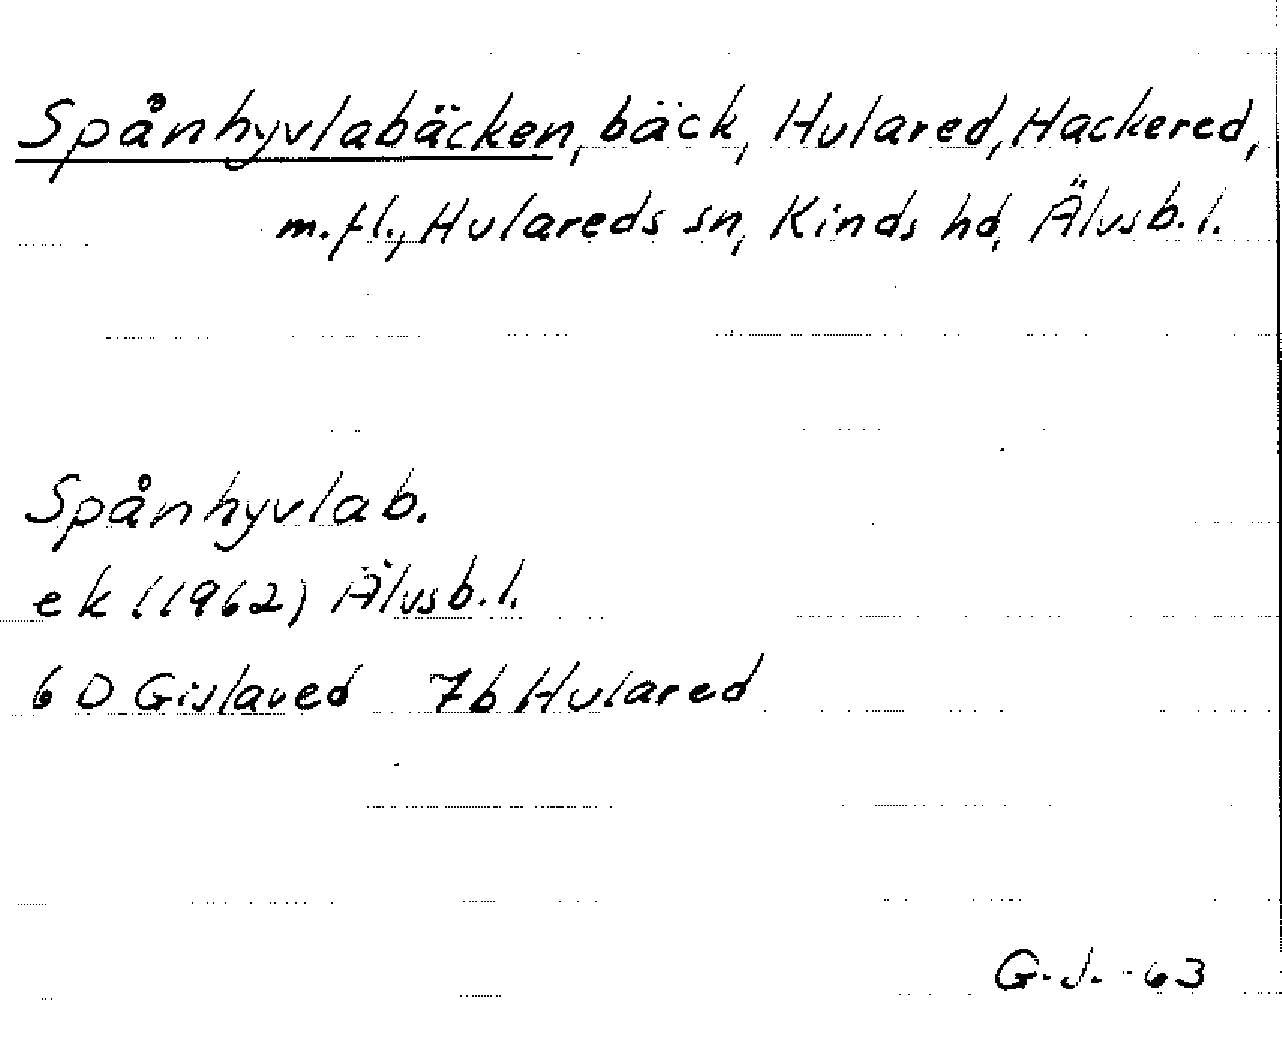 Spånhyvlabäcken, bäck, Hulared, Hackered,
m.fl., Hulareds sn, Kinds hd, Älvsb.l.
Spånhyvlab.
ek (1962) Älvsb.l.
6 D Gislaved 7b Hulared
G.J. -63